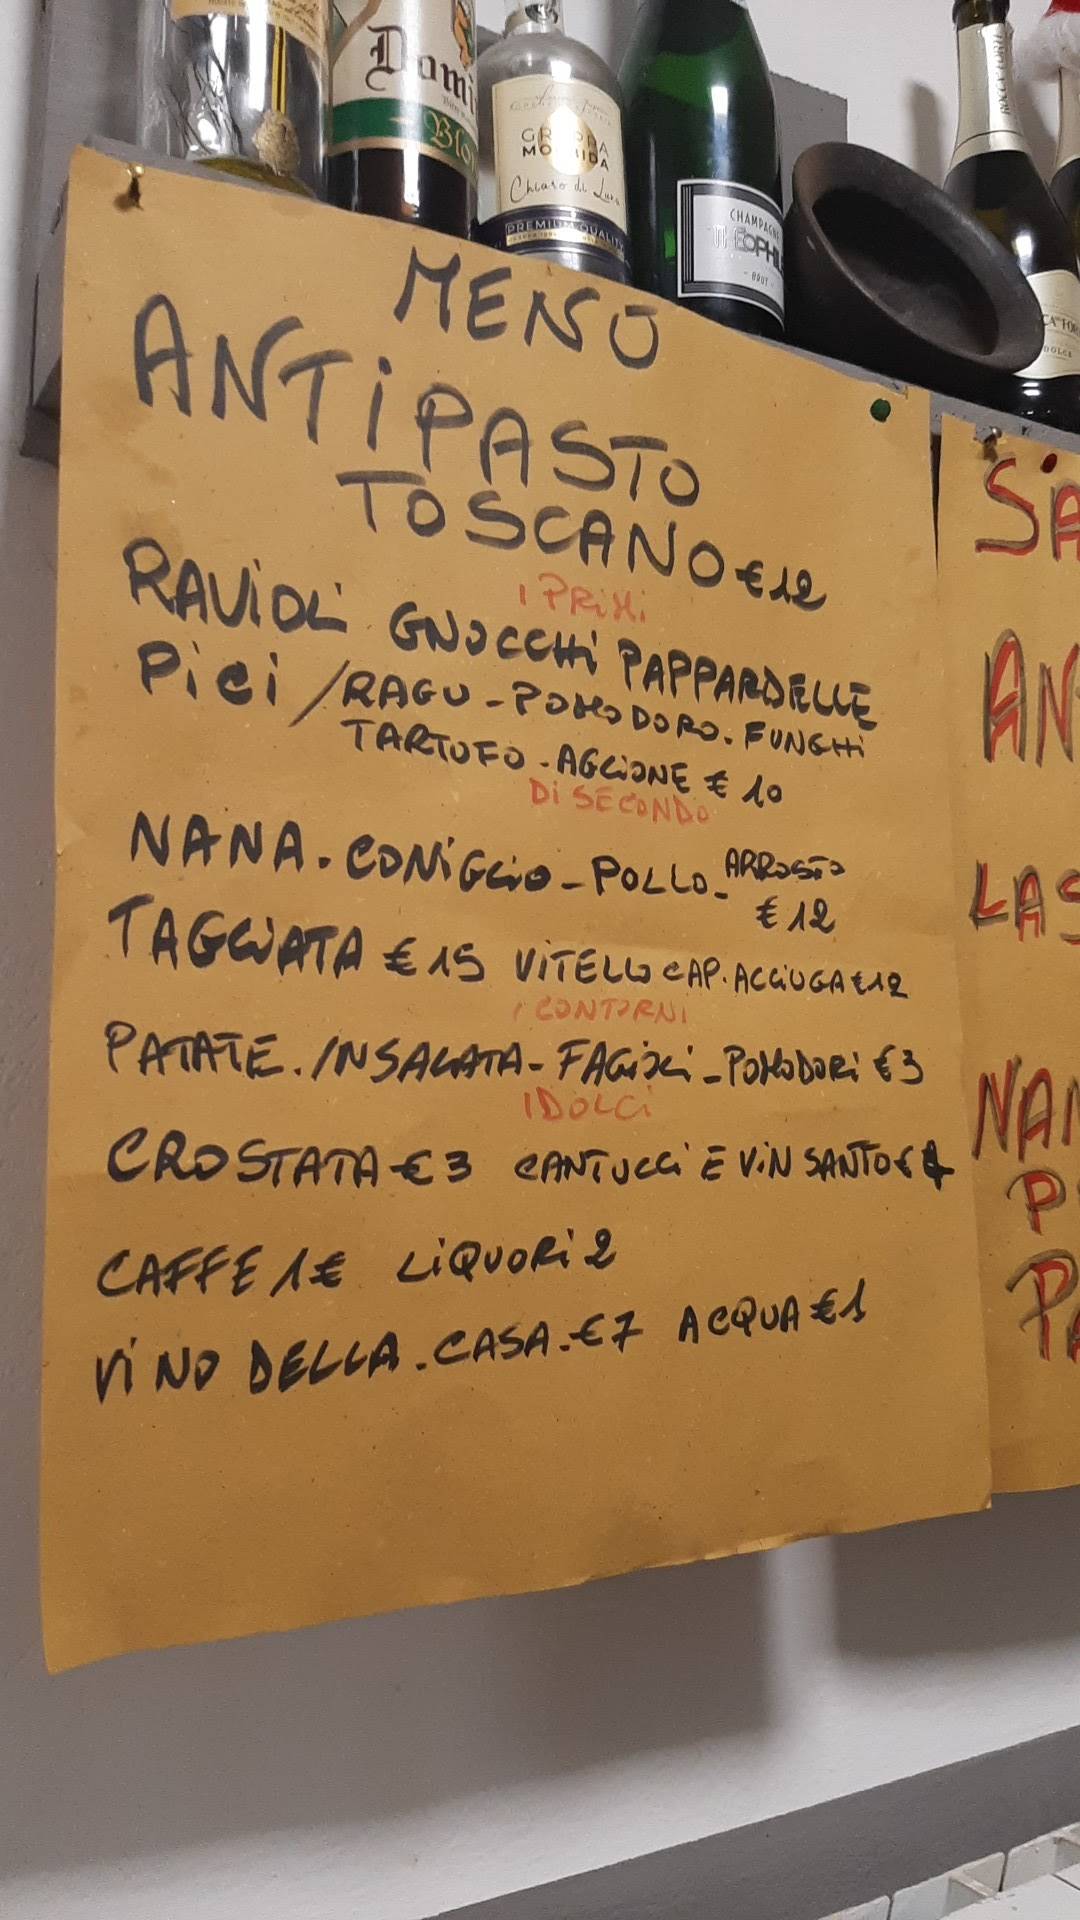 Domi
Blo
GRAPPA
MORBIDA
Chiaro di Luna
PREMIUM QUALITY
CHAMPAGNE
THEOPHIL
BRUT
DOLCE
MENÙ
ANTIPASTO
TOSCANO €12
I PRIMI
RAVIOLI GNOCCHI PAPPARDELLE
PICI / RAGU - POMODORO - FUNGHI
TARTUFO - AGLIONE € 10
DI SECONDO
NANA - CONIGLIO - POLLO - ARROSTO
€ 12
TAGLIATA € 15 VITELLO CAP. ACCIUGA € 12
I CONTORNI
PATATE - INSALATA - FAGIOLI - POMODORI € 3
I DOLCI
CROSTATA € 3 CANTUCCI E VIN SANTO €
CAFFE 1 € LIQUORI 2
VINO DELLA - CASA - € 7 ACQUA € 1
SA
AN
LAS
NAN
P
PA